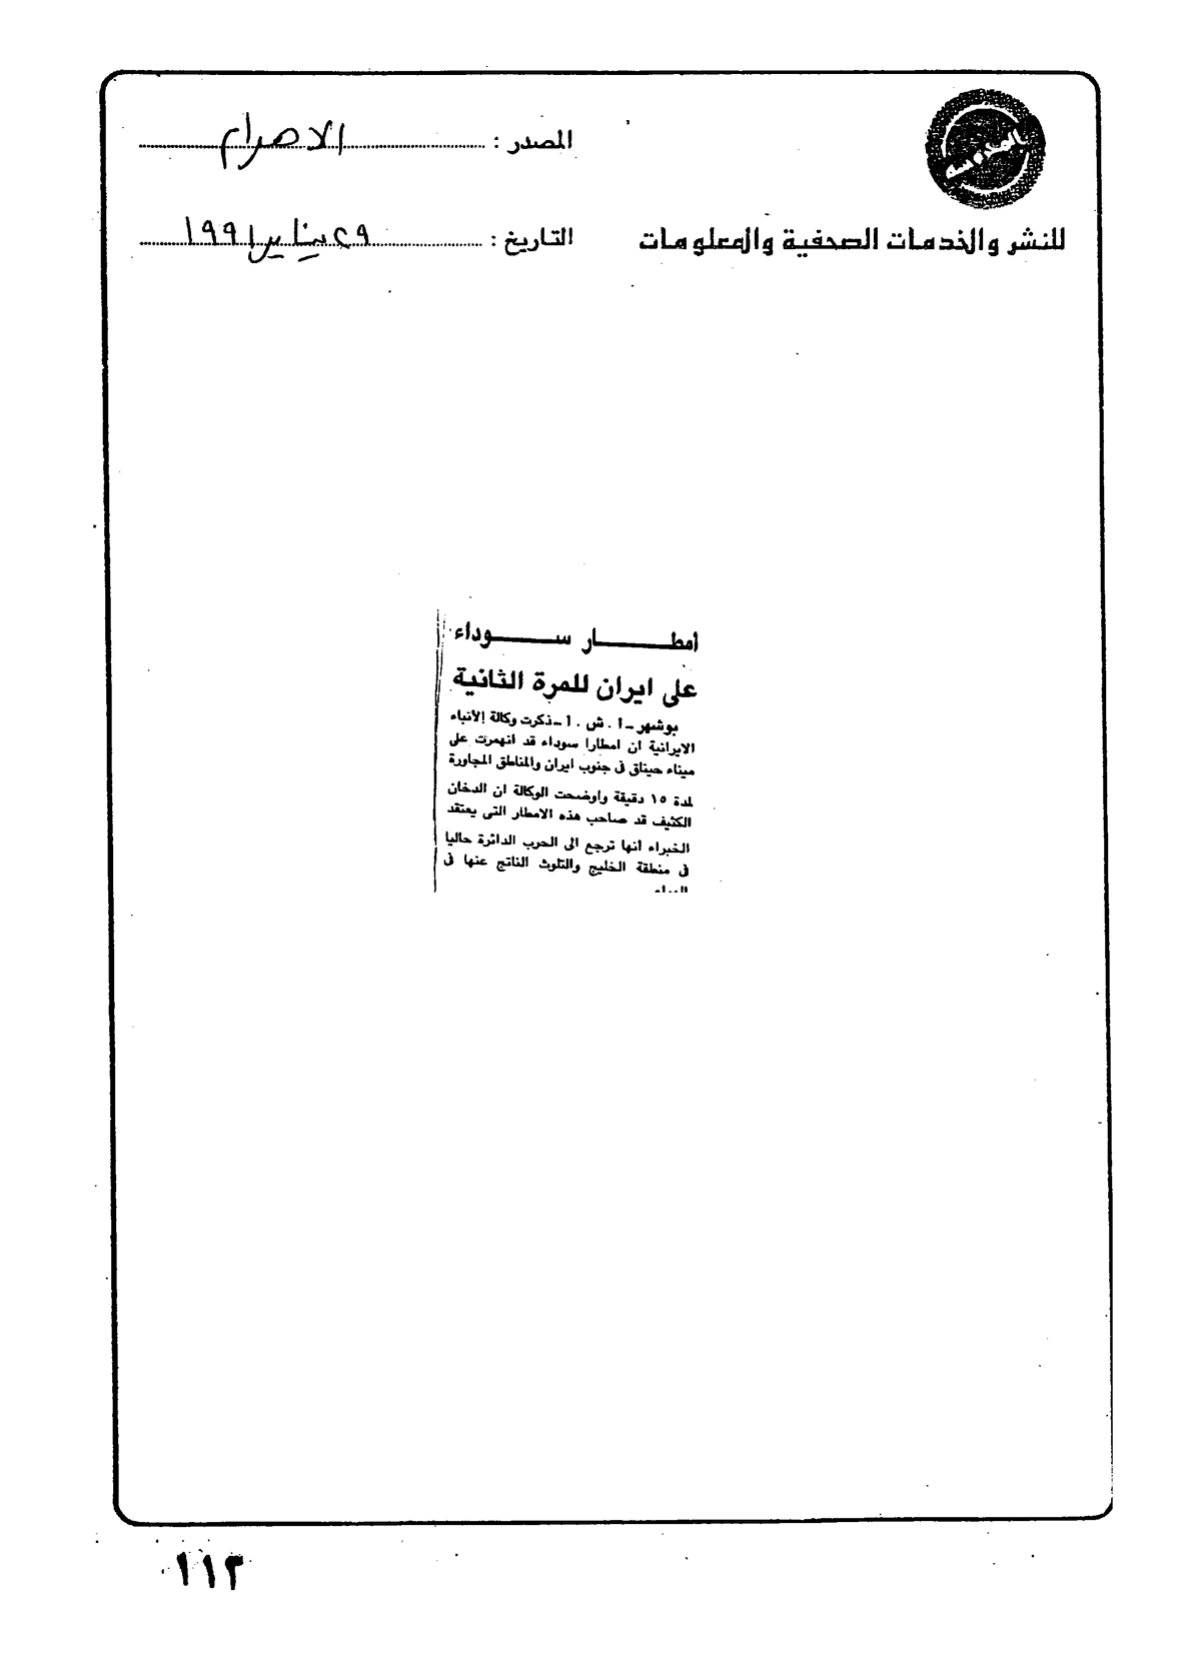 المصدر : الاهرام
للنشر والخدمات الصحفية والمعلومات
التاريخ : ٢٩ يناير ١٩٩١
أمطـــــار ســـــوداء
على ايران للمرة الثانية
بوشهر ـ ا . ش . ا ـ ذكرت وكالة الأنباء
الايرانية ان امطارا سوداء قد انهمرت على
ميناء جيناق فى جنوب ايران والمناطق المجاورة
لمدة ١٥ دقيقة واوضحت الوكالة ان الدخان
الكثيف قد صاحب هذه الامطار التى يعتقد
الخبراء أنها ترجع الى الحرب الدائرة حاليا
فى منطقة الخليج والتلوث الناتج عنها فى
١١٣